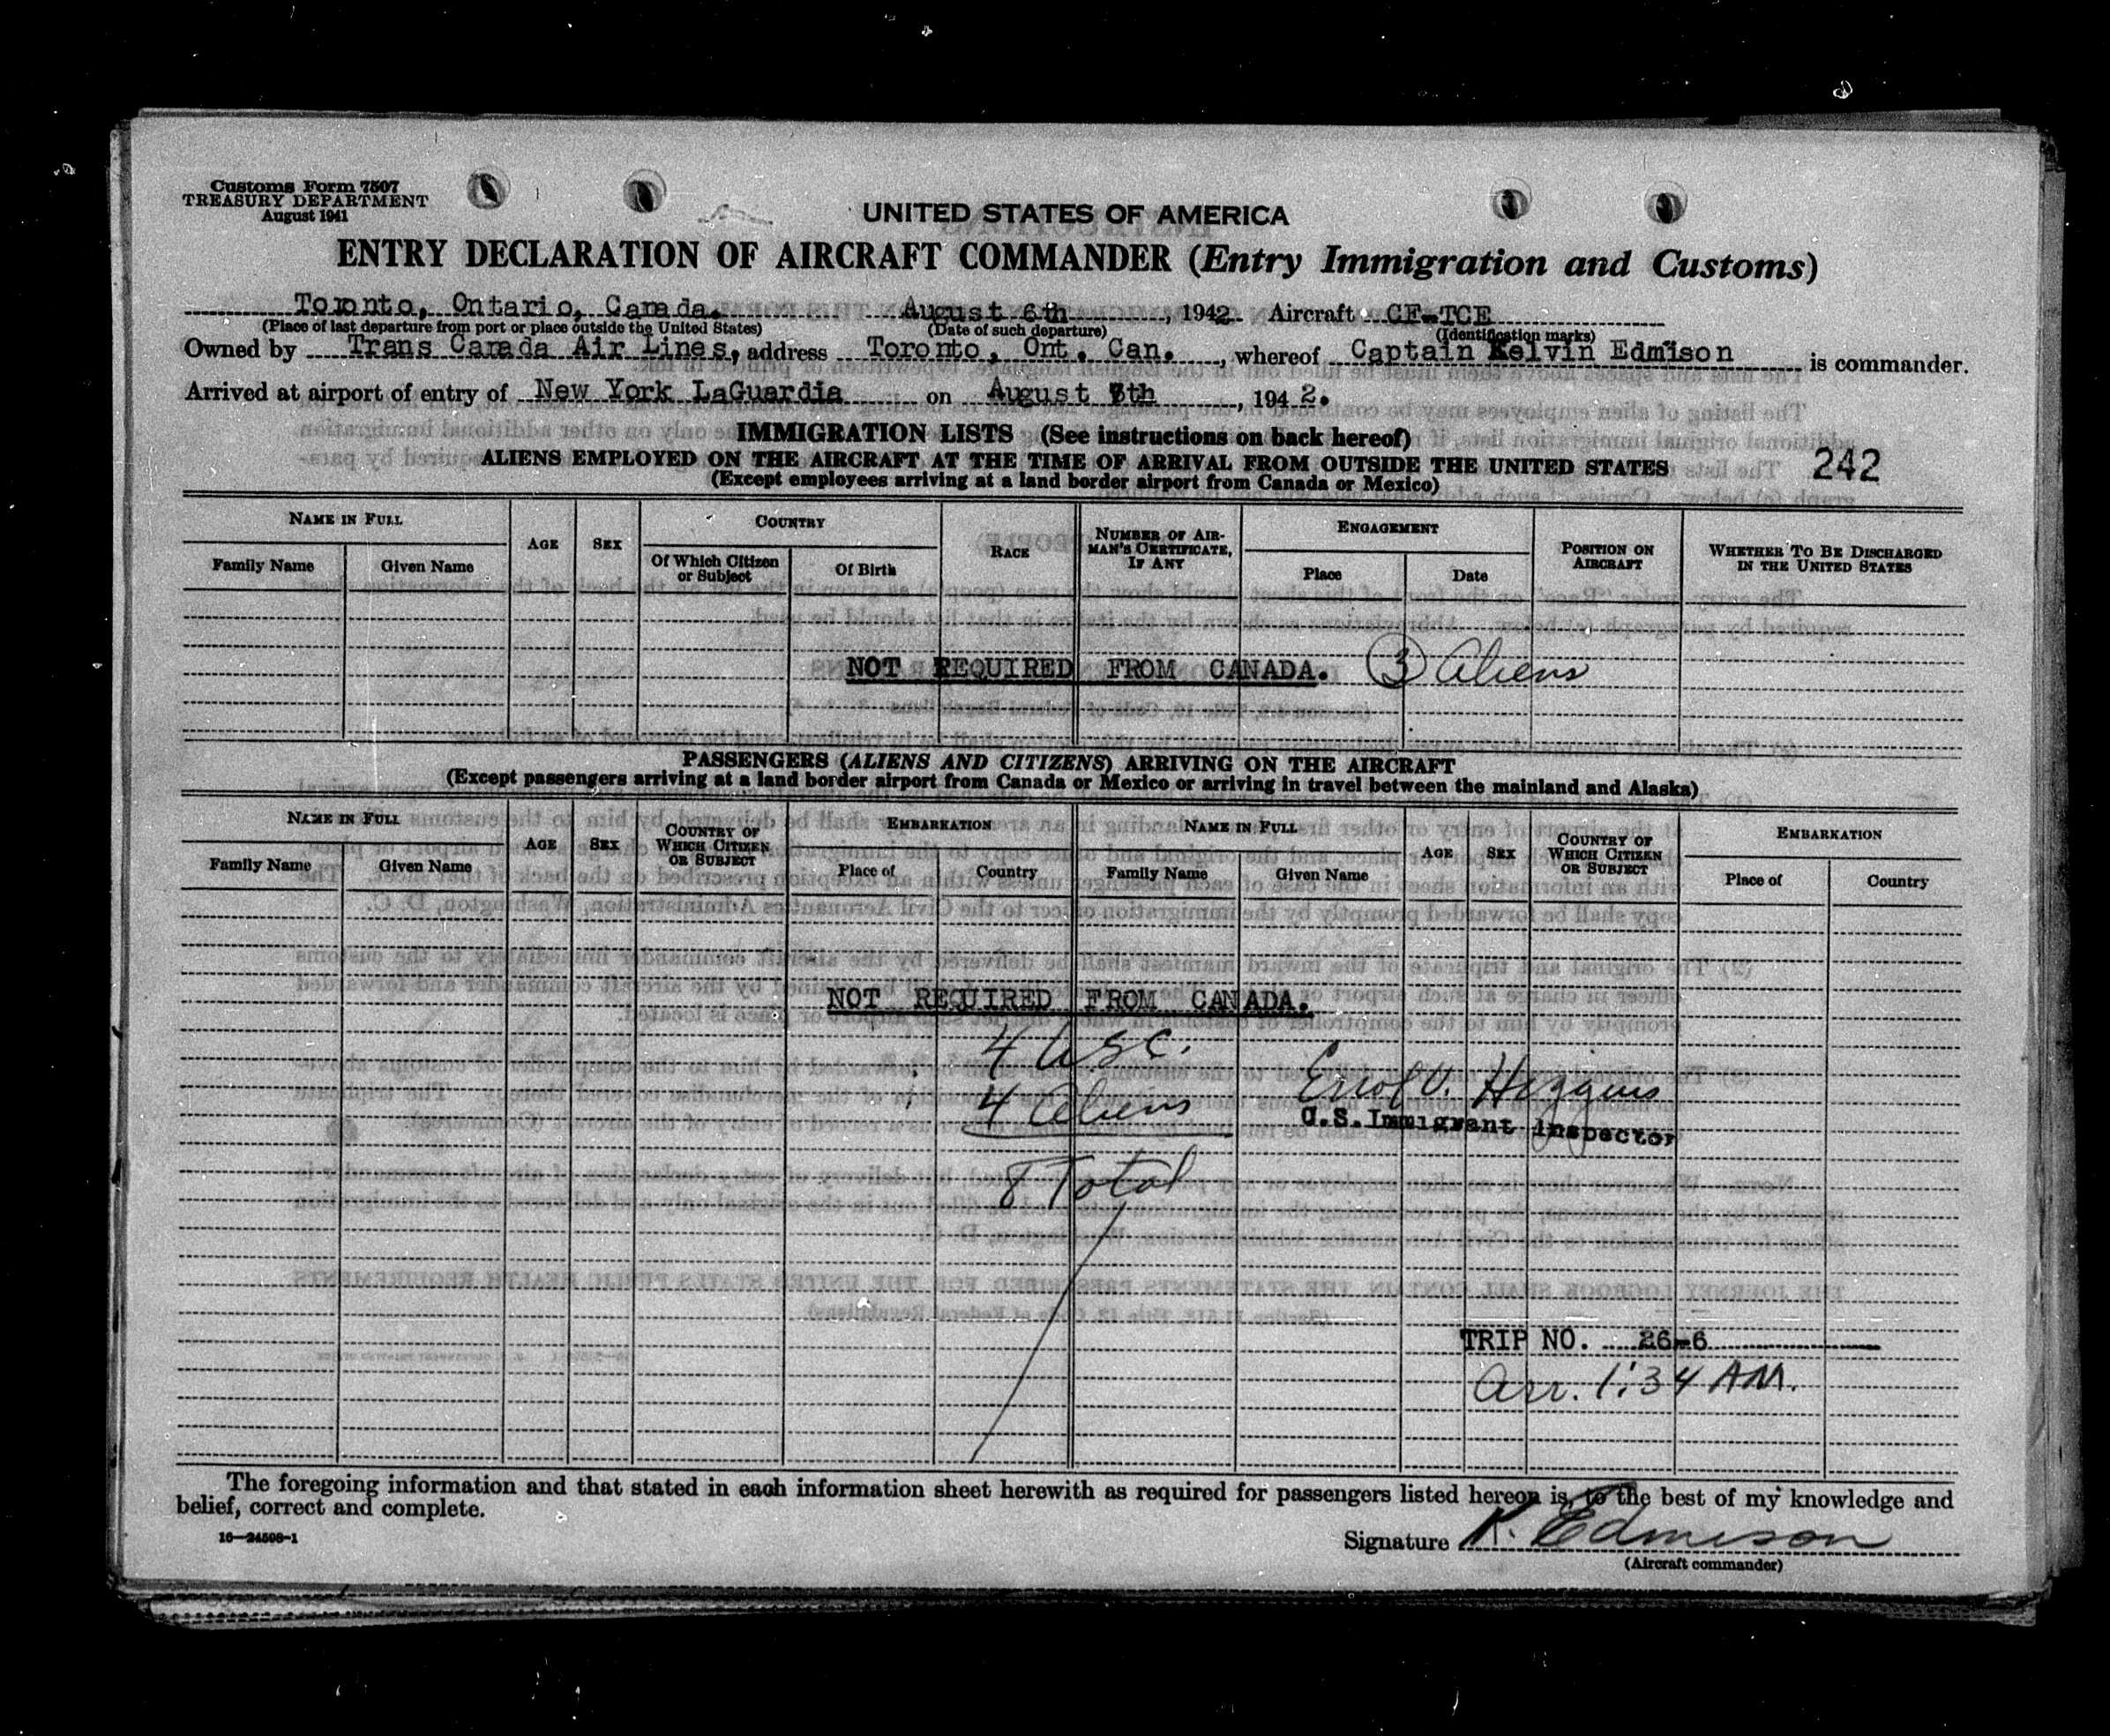 Customs Form 7507
TREASURY DEPARTMENT
August 1941
UNITED STATES OF AMERICA
ENTRY DECLARATION OF AIRCRAFT COMMANDER (Entry Immigration and Customs)
Toronto, Ontario, Canada. August 6th, 1942 Aircraft CF-TCE
(Place of last departure from port or place outside the United States) (Date of such departure) (Identification marks)
Owned by Trans Canada Air Lines, address Toronto, Ont. Can., whereof Captain Kelvin Edmison is commander.
Arrived at airport of entry of New York LaGuardia on August 7th, 1942.
IMMIGRATION LISTS (See instructions on back hereof)
ALIENS EMPLOYED ON THE AIRCRAFT AT THE TIME OF ARRIVAL FROM OUTSIDE THE UNITED STATES 242
(Except employees arriving at a land border airport from Canada or Mexico)
NAME IN FULL AGE SEX COUNTRY RACE NUMBER OF AIRMAN'S CERTIFICATE, IF ANY ENGAGEMENT POSITION ON AIRCRAFT WHETHER TO BE DISCHARGED IN THE UNITED STATES
Family Name Given Name Of Which Citizen or Subject Of Birth Place Date
NOT REQUIRED FROM CANADA. 3 Aliens
PASSENGERS (ALIENS AND CITIZENS) ARRIVING ON THE AIRCRAFT
(Except passengers arriving at a land border airport from Canada or Mexico or arriving in travel between the mainland and Alaska)
NAME IN FULL AGE SEX COUNTRY OF WHICH CITIZEN OR SUBJECT EMBARKATION NAME IN FULL AGE SEX COUNTRY OF WHICH CITIZEN OR SUBJECT EMBARKATION
Family Name Given Name Place of Country Family Name Given Name Place of Country
NOT REQUIRED FROM CANADA.
4 USC.
4 Aliens Errol V. Higgins
U.S. Immigrant Inspector
8 Total
TRIP NO. 26-6
Arr. 1:34 AM.
The foregoing information and that stated in each information sheet herewith as required for passengers listed hereon is, to the best of my knowledge and
belief, correct and complete.
16—24598-1
Signature K. Edmison
(Aircraft commander)